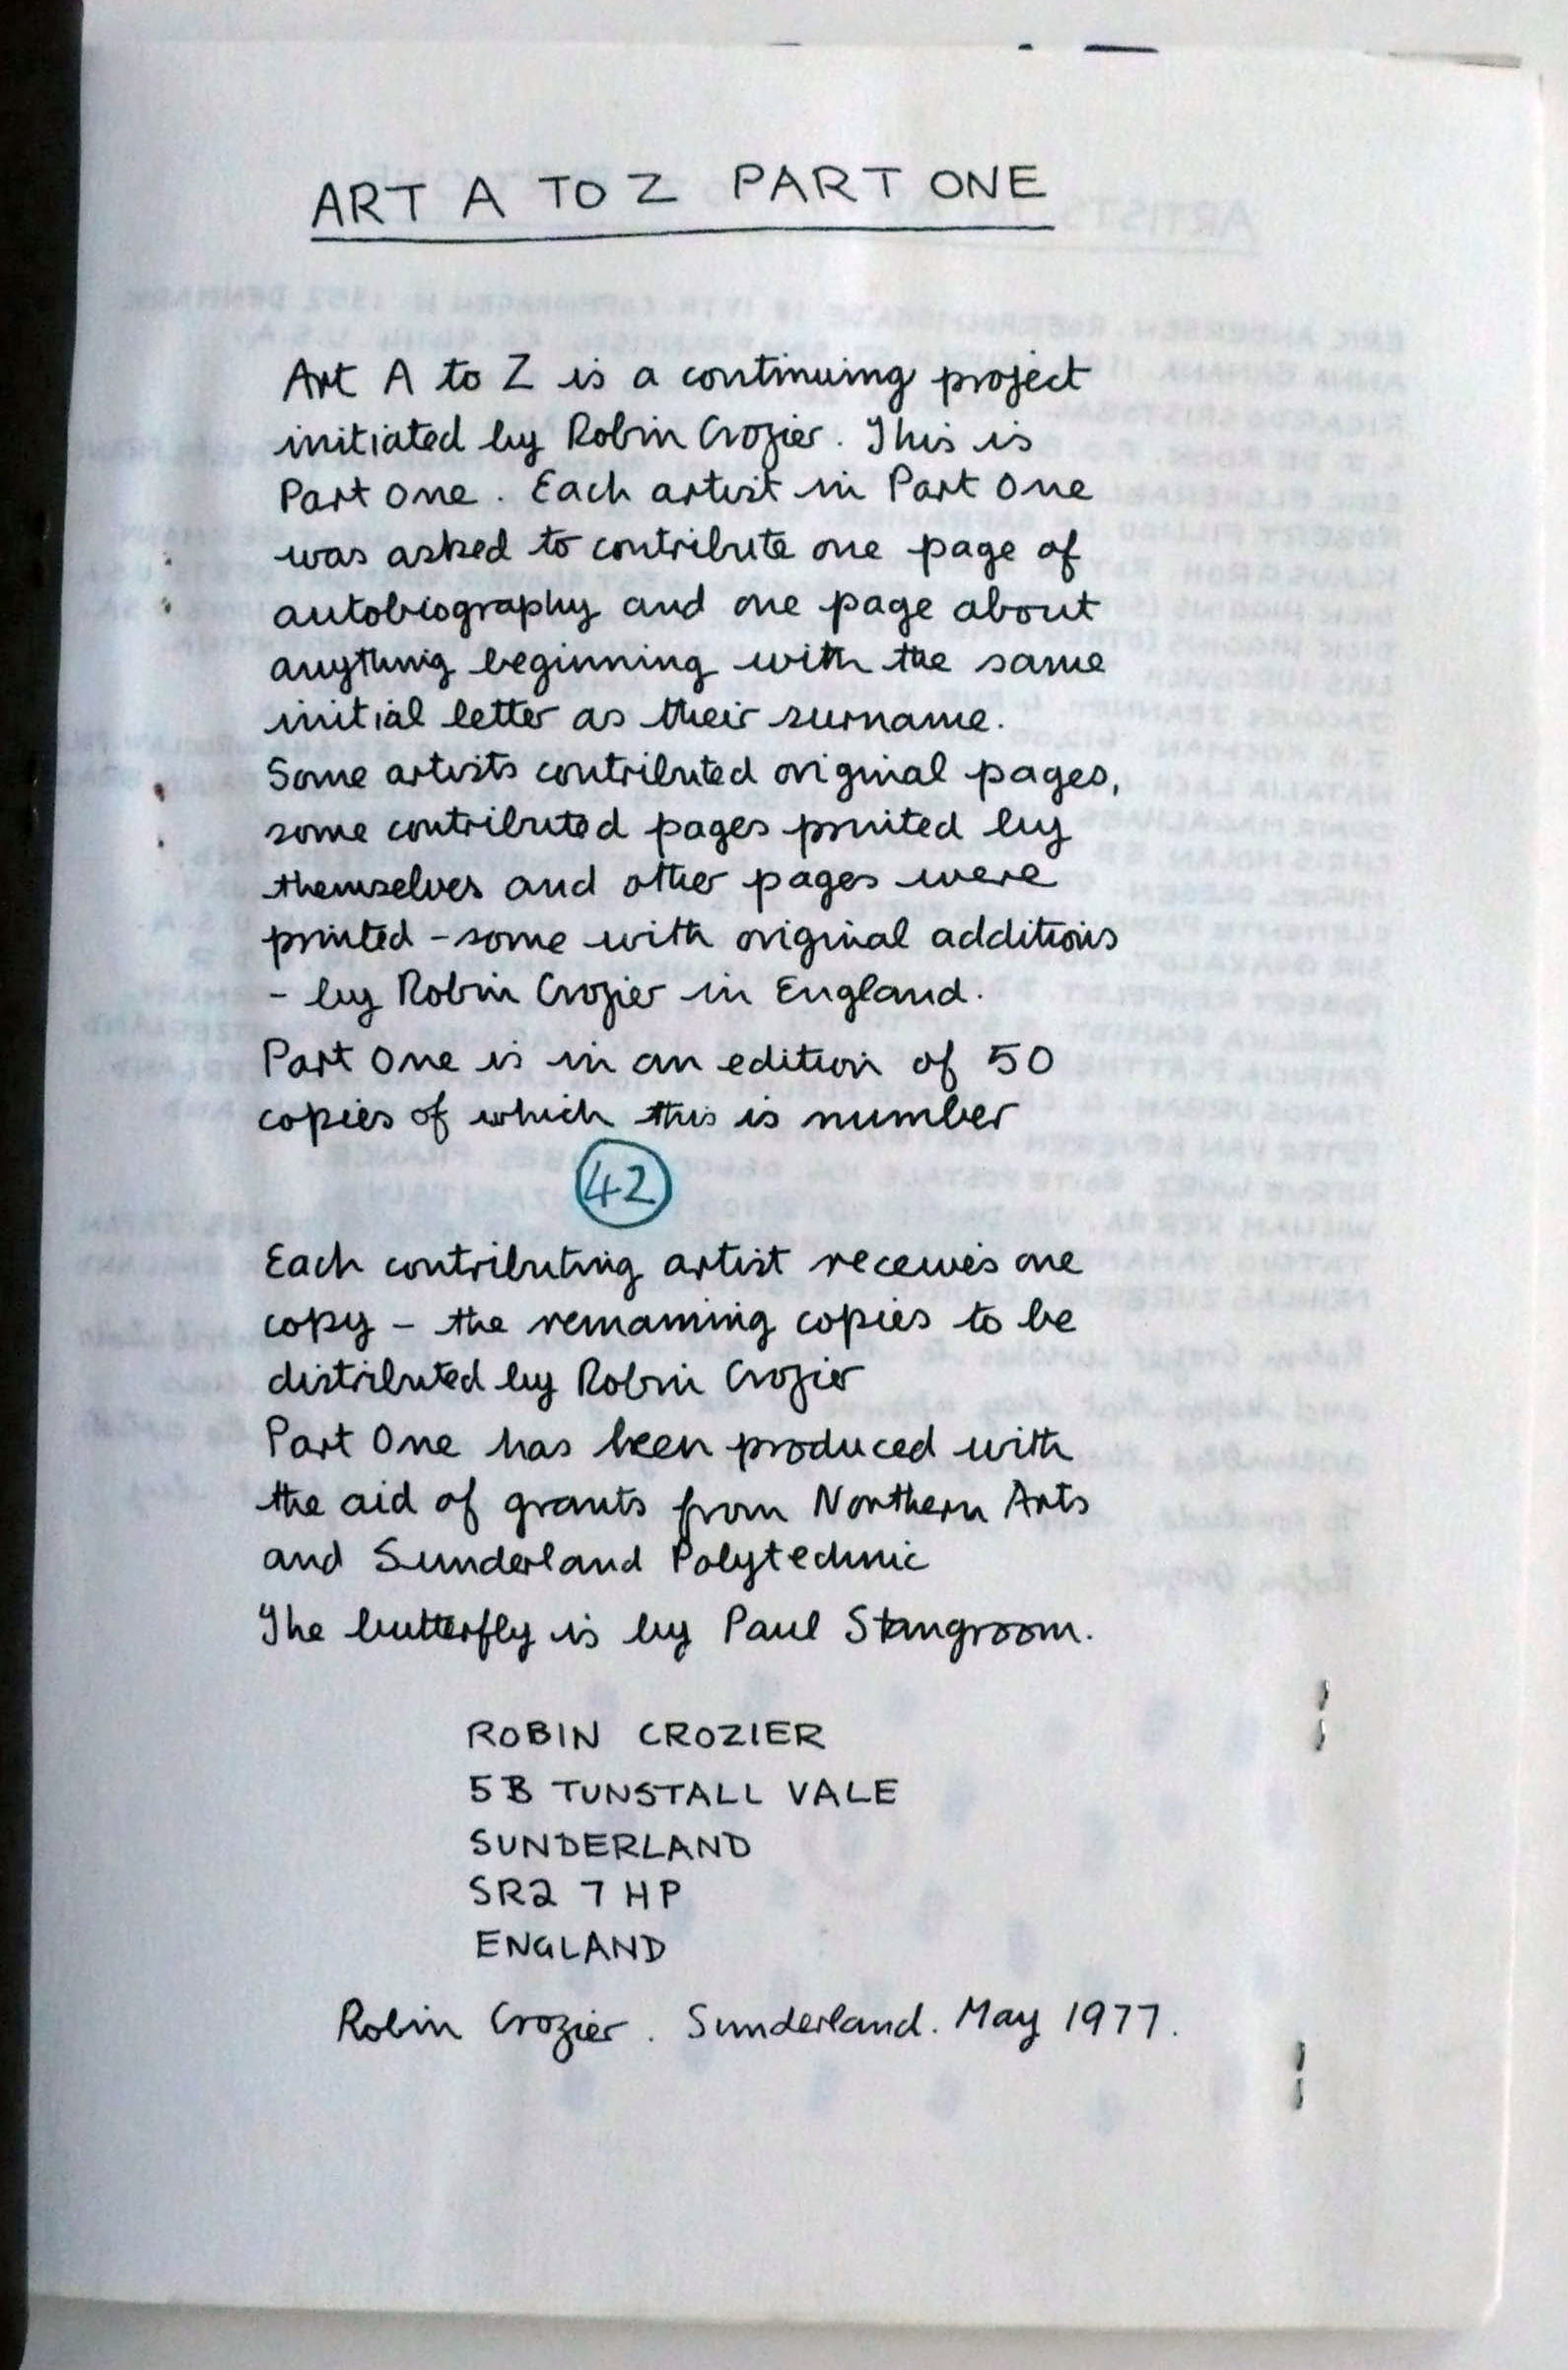 ART A TO Z PART ONE
Art A to Z is a continuing project
initiated by Robin Crozier. This is
Part One. Each artist in Part One
was asked to contribute one page of
autobiography and one page about
anything beginning with the same
initial letter as their surname.
Some artists contributed original pages,
some contributed pages printed by
themselves and other pages were
printed - some with original additions
- by Robin Crozier in England.
Part One is in an edition of 50
copies of which this is number
42
Each contributing artist receives one
copy - the remaining copies to be
distributed by Robin Crozier
Part One has been produced with
the aid of grants from Northern Arts
and Sunderland Polytechnic
The butterfly is by Paul Stangroom.
ROBIN CROZIER
5B TUNSTALL VALE
SUNDERLAND
SR2 7HP
ENGLAND
Robin Crozier. Sunderland. May 1977.